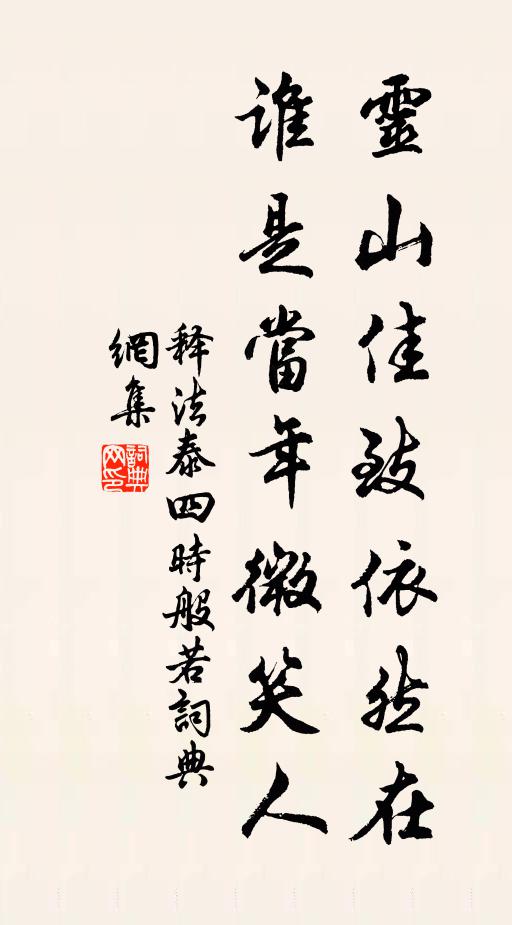 靈山佳致依然在
誰是當年微笑人
释法泰四時般若詞典
網集
詞典
网印